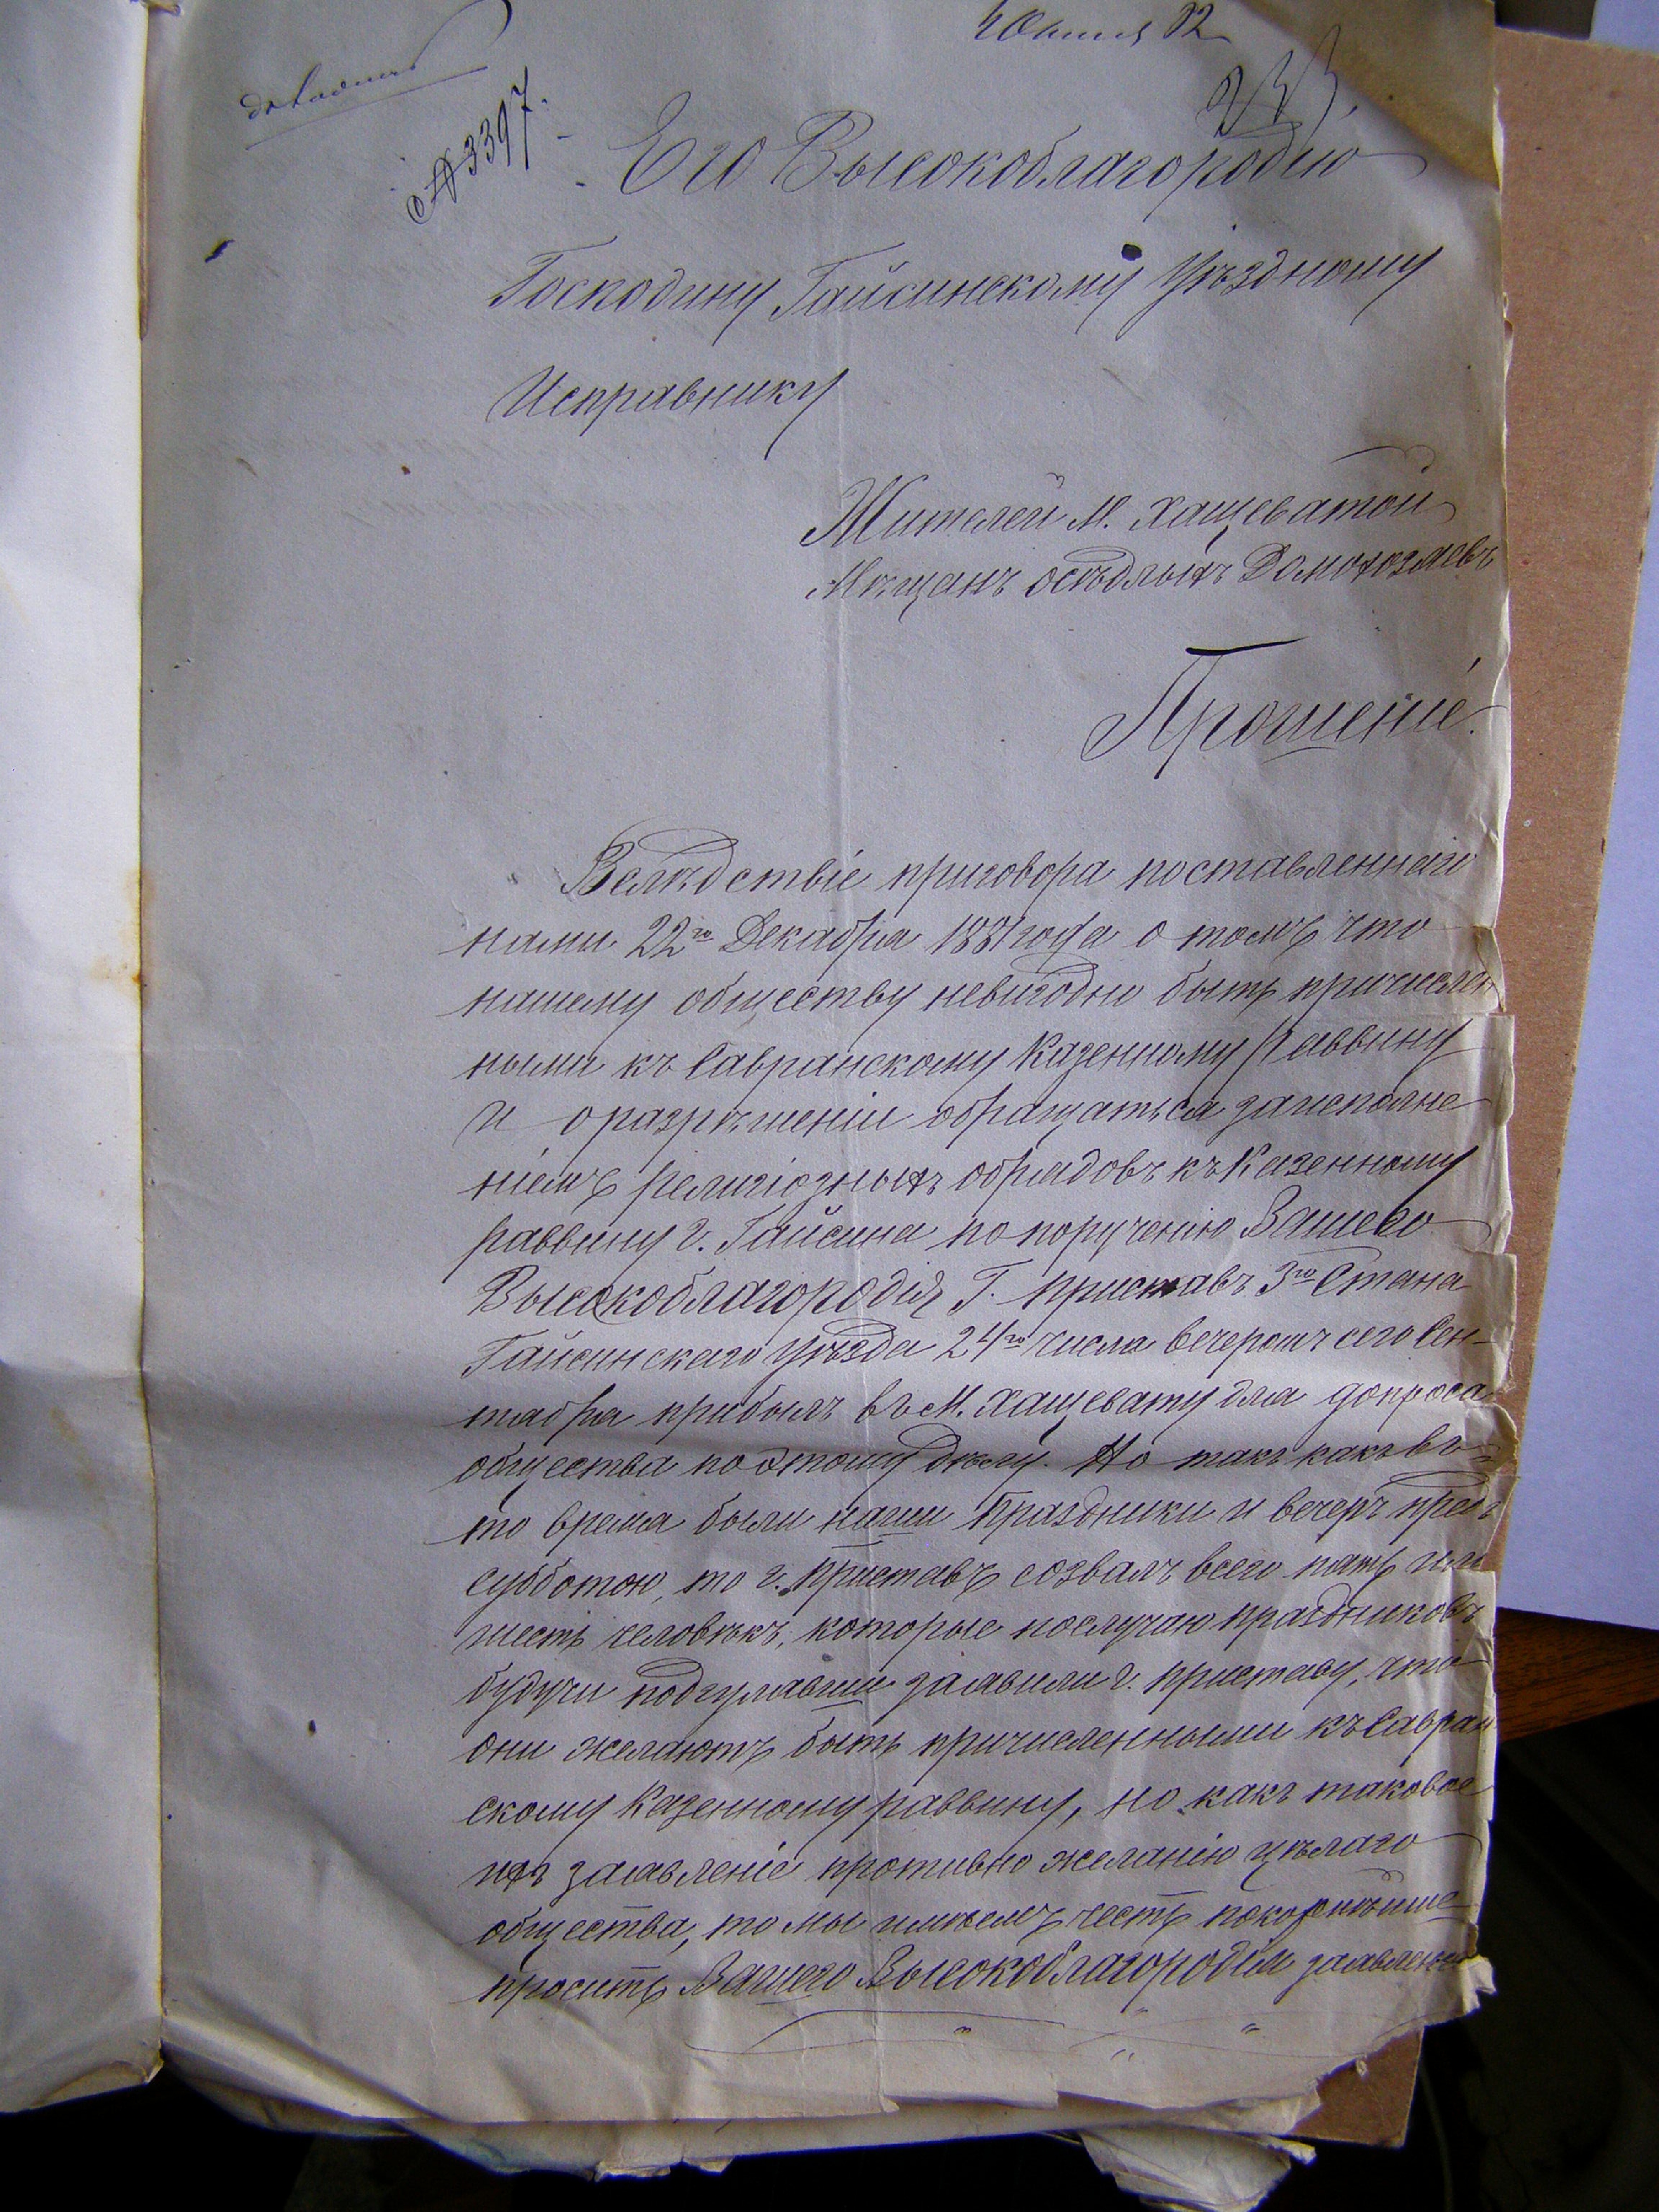 82
№ 3397.
233.
Его Высокоблагородію
Господину Гайсинскому Уѣздному
Исправнику
Жителей М. Хащеватой
Мѣщанъ осѣдлыхъ Домохозяевъ
Прошеніе.
Вслѣдствіе приговора поставленнаго
нами 22го Декабря 1881 года о томъ что
нашему обществу невигодно быть причислен
ными къ Савранскому Казенному Раввину
и о разрѣшеніи обращаться за исполне
ніемъ религіозныхъ обрядовъ къ Казенному
раввину г. Гайсина по порученію Вашего
Высокоблагородія Г. Приставъ 3го Стана
Гайсинскаго Уѣзда 24го числа вечеромъ сего Сен-
тября прибылъ въ М. Хащевату для допроса
общества по этому дѣлу. Но такъ какъ въ
то время были наши Праздники и вечеръ предъ
субботою, то г. Приставъ созвалъ всего пять или
шесть человѣкъ, которые по случаю праздниковъ
будучи подгулявши заявили г. приставу, что
они желаютъ быть причисленными къ Савран
скому Казенному раввину, но какъ таковое
ихъ заявленіе противно желанію цѣлаго
общества, то мы имѣемъ честь покорнѣйше
просить Вашего Высокоблагородія заявленіе